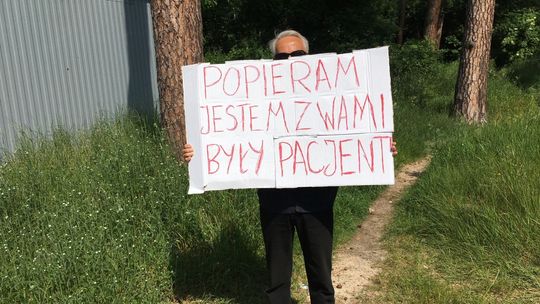 POPIERAM
JESTEM Z WAMI
BYŁY PACJENT